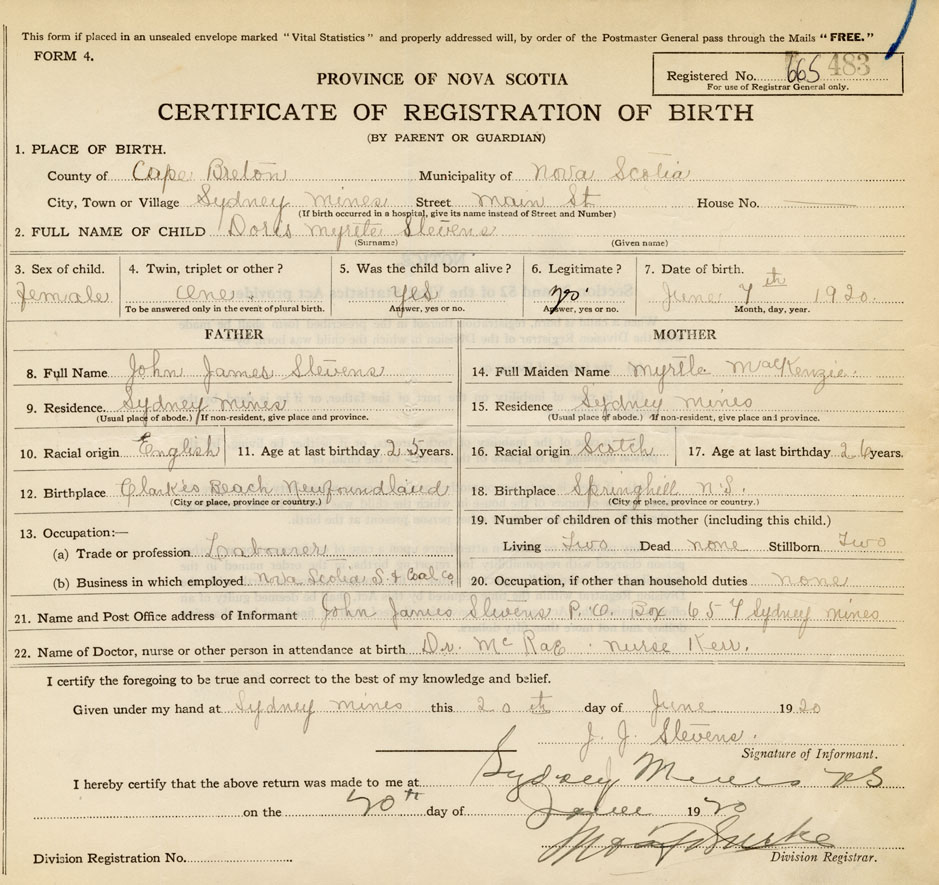 This form if placed in an unsealed envelope marked "Vital Statistics" and properly addressed will, by order of the Postmaster General pass through the Mails "FREE."
FORM 4.
Registered No. 665 483
For use of Registrar General only.
PROVINCE OF NOVA SCOTIA
CERTIFICATE OF REGISTRATION OF BIRTH
(BY PARENT OR GUARDIAN)
1. PLACE OF BIRTH.
County of Cape Breton Municipality of Nova Scotia
City, Town or Village Sydney Mines Street Main St House No.
(If birth occurred in a hospital, give its name instead of Street and Number)
2. FULL NAME OF CHILD Doris Myrtle Stevens
(Surname) (Given name)
3. Sex of child. 4. Twin, triplet or other? 5. Was the child born alive? 6. Legitimate? 7. Date of birth.
Female One. yes June 7th 1920.
To be answered only in the event of plural birth. Answer, yes or no. Answer, yes or no. Month, day, year.
FATHER MOTHER
8. Full Name John James Stevens 14. Full Maiden Name Myrtle MacKenzie.
9. Residence. Sydney Mines 15. Residence Sydney Mines
(Usual place of abode.) If non-resident, give place and province. (Usual place of abode.) If non-resident, give place and province.
10. Racial origin English 11. Age at last birthday 25 years. 16. Racial origin Scotch 17. Age at last birthday 26 years.
12. Birthplace Clarkes Beach Newfoundland 18. Birthplace Springhill N.S.
(City or place, province or country.) (City or place, province or country.)
13. Occupation:— 19. Number of children of this mother (including this child.)
(a) Trade or profession Labourer Living Two Dead none Stillborn Two
(b) Business in which employed Nova Scotia S. & Coal Co 20. Occupation, if other than household duties none
21. Name and Post Office address of Informant John James Stevens P.O. Box 657 Sydney Mines
22. Name of Doctor, nurse or other person in attendance at birth Dr. McRae. Nurse Kerr.
I certify the foregoing to be true and correct to the best of my knowledge and belief.
Given under my hand at Sydney Mines this 20th day of June 1920
J. J. Stevens.
Signature of Informant.
I hereby certify that the above return was made to me at Sydney Mines NS
on the 20th day of June 1920
Division Registration No. Division Registrar.